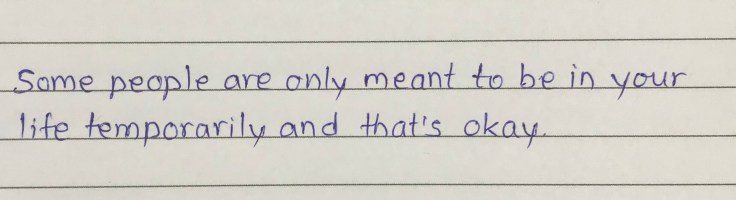 Some people are only meant to be in your
life temporarily and that's okay.